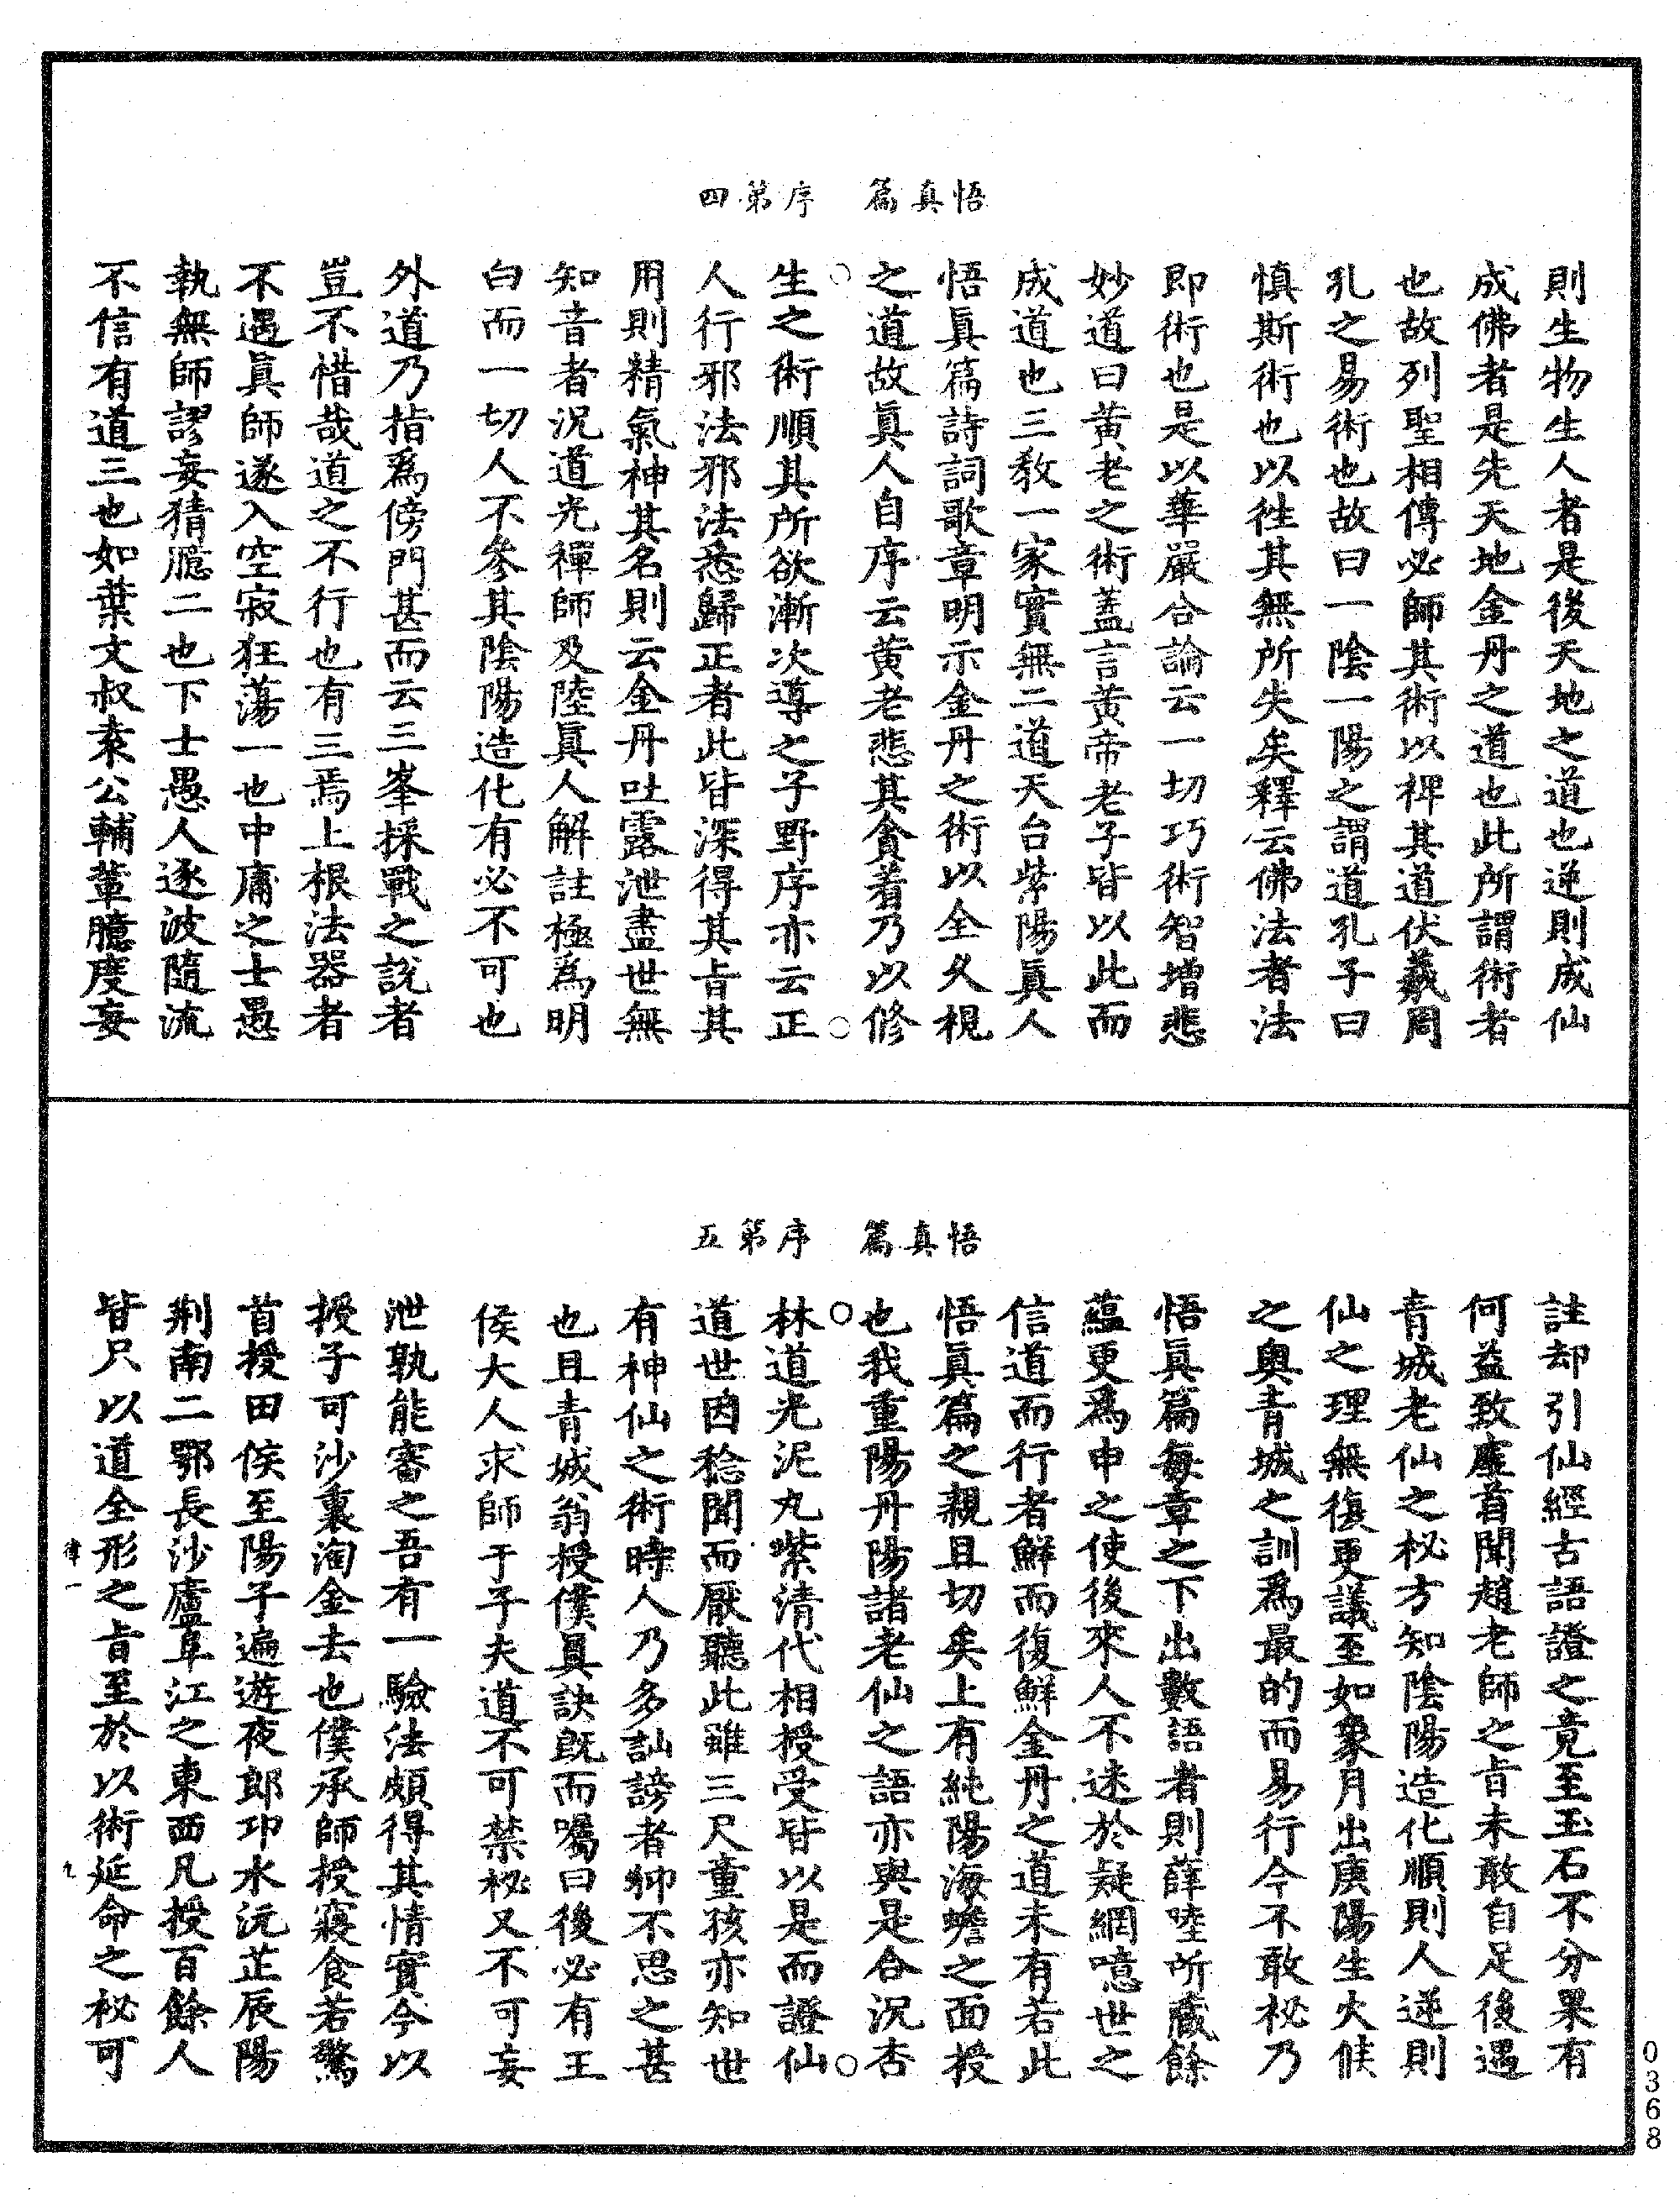 悟真篇　序第四
則生物生人者是後天地之道也逆則成仙
成佛者是先天地金丹之道也此所謂術者
也故列聖相傳必師其術以裨其道伏羲周
孔之易術也故曰一陰一陽之謂道孔子曰
慎斯術也以徃其無所失矣釋云佛法者法
即術也是以華嚴合論云一切巧術智增悲
妙道曰黃老之術蓋言黃帝老子皆以此而
成道也三教一家實無二道天台紫陽眞人
悟眞篇詩詞歌章明示金丹之術以全久視
之道故眞人自序云黃老悲其貪着乃以修
生之術順其所欲漸次導之子野序亦云正
人行邪法邪法悉歸正者此皆深得其旨其
用則精氣神其名則云金丹吐露泄盡世無
知音者況道光禪師及陸眞人解註極爲明
白而一切人不參其陰陽造化有必不可也
外道乃指爲傍門甚而云三峯採戰之說者
豈不惜哉道之不行也有三焉上根法器者
不遇眞師遂入空寂狂蕩一也中庸之士愚
執無師謬妄猜臆二也下士愚人逐波隨流
不信有道三也如葉文叔袁公輔輩臆度妄
悟真篇　序第五
註却引仙經古語證之竟至玉石不分果有
何益致虛首聞趙老師之旨未敢自足後遇
青城老仙之秘方知陰陽造化順則人逆則
仙之理無復更議至如象月出庚陽生火候
之奧青城之訓爲最的而易行今不敢秘乃
悟眞篇每章之下出數語者則薛陸所藏餘
蘊更爲申之使後來人不迷於疑網噫世之
信道而行者鮮而復鮮金丹之道未有若此
悟眞篇之親且切矣上有純陽海蟾之面授
也我重陽丹陽諸老仙之語亦與是合況杏
林道光泥丸紫清代相授受皆以是而證仙
道世因稔聞而厭聽此雖三尺童孩亦知世
有神仙之術時人乃多訕謗者抑不思之甚
也且青城翁授僕眞訣旣而囑曰後必有王
侯大人求師于子夫道不可禁秘又不可妄
泄孰能審之吾有一驗法頗得其情實今以
授子可沙裏淘金去也僕承師授寢食若驚
首授田侯至陽子遍遊夜郎邛水沅芷辰陽
荆南二鄂長沙廬阜江之東西凡授百餘人
皆只以道全形之旨至於以術延命之秘可
律一
九
0368